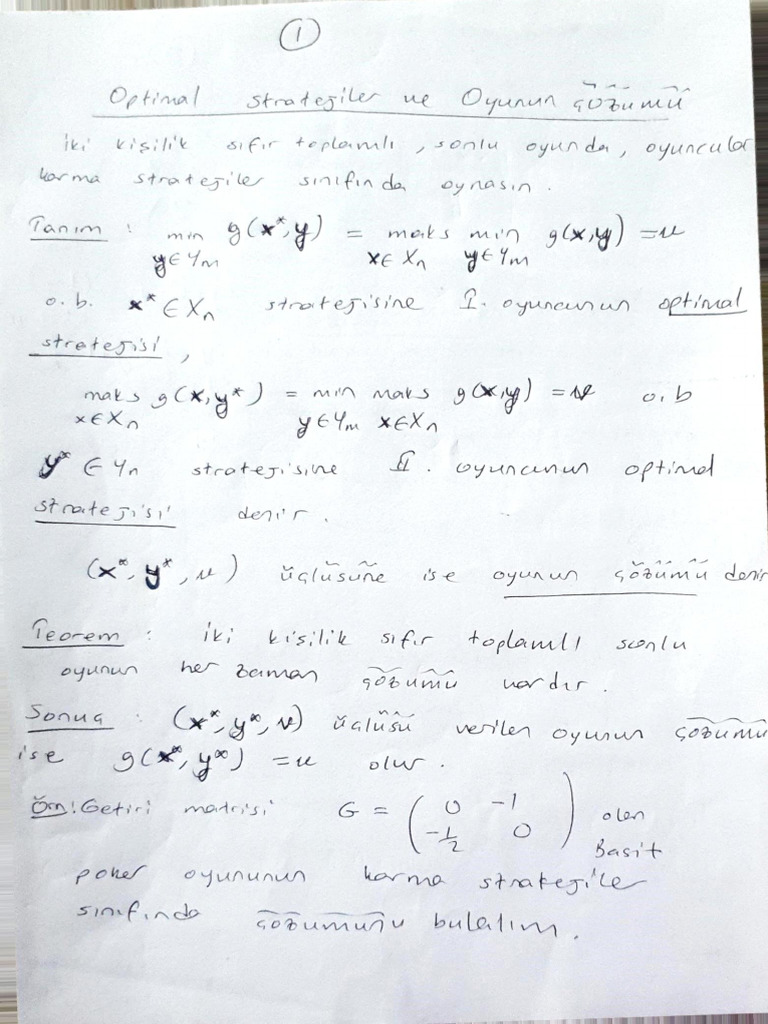 1
Optimal stratejiler ve Oyunun çözümü
iki kişilik sıfır toplamlı, sonlu oyunda, oyuncular
karma stratejiler sınıfında oynasın.
Tanım : min g(x*,y) = maks min g(x,y) = v
y∈Ym x∈Xn y∈Ym
o.b. x* ∈ Xn stratejisine I. oyuncunun optimal
stratejisi,
maks g(x,y*) = min maks g(x,y) = v o.b
x∈Xn y∈Ym x∈Xn
y* ∈ Yn stratejisine II. oyuncunun optimal
stratejisi denir.
(x*, y*, v) üçlüsüne ise oyunun çözümü denir
Teorem : iki kişilik sıfır toplamlı sonlu
oyunun her zaman çözümü vardır.
Sonuç : (x*, y*, v) üçlüsü verilen oyunun çözümü
ise g(x*, y*) = v olur.
Örn: Getiri matrisi G = ( 0 -1
-1/2 0 ) olan
Basit
poker oyununun karma stratejiler
sınıfında çözümünü bulalım.